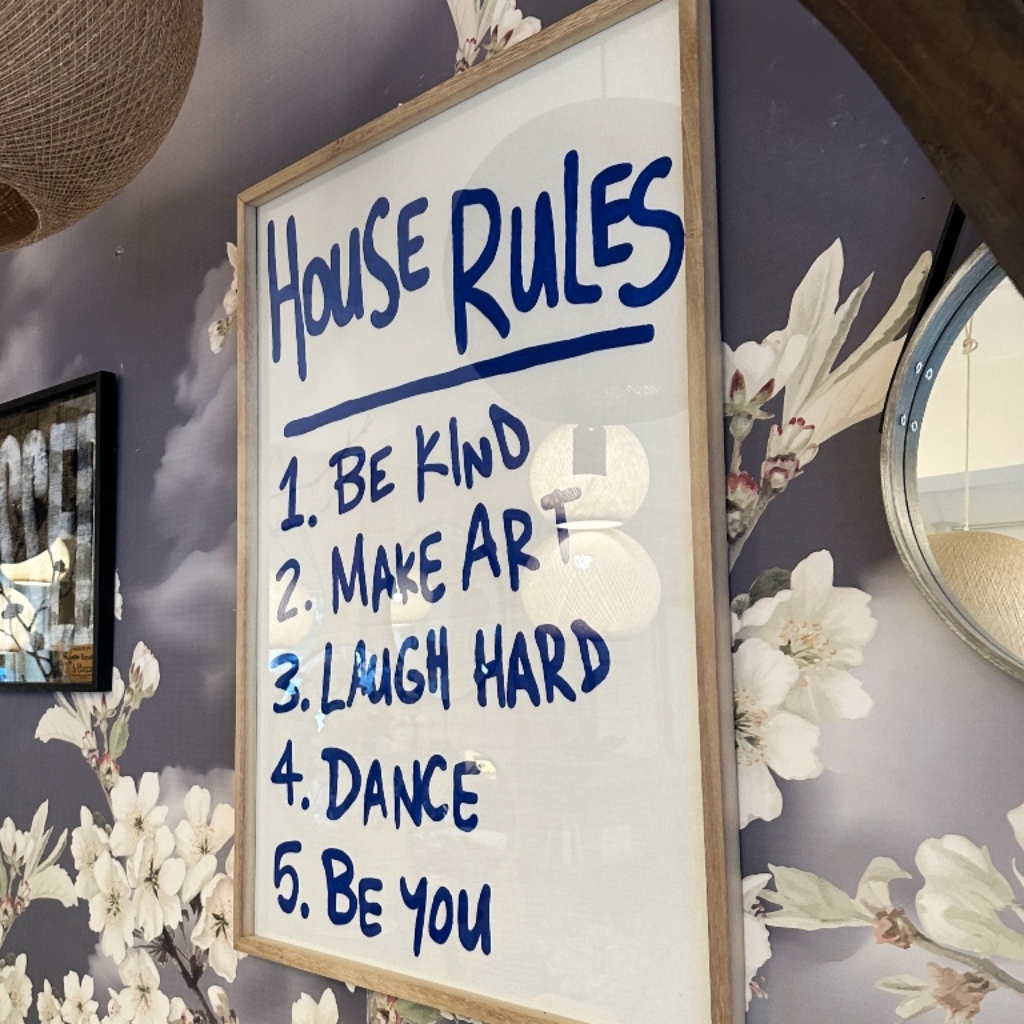 HOUSE RULES
1. BE KIND
2. MAKE ART
3. LAUGH HARD
4. DANCE
5. BE YOU